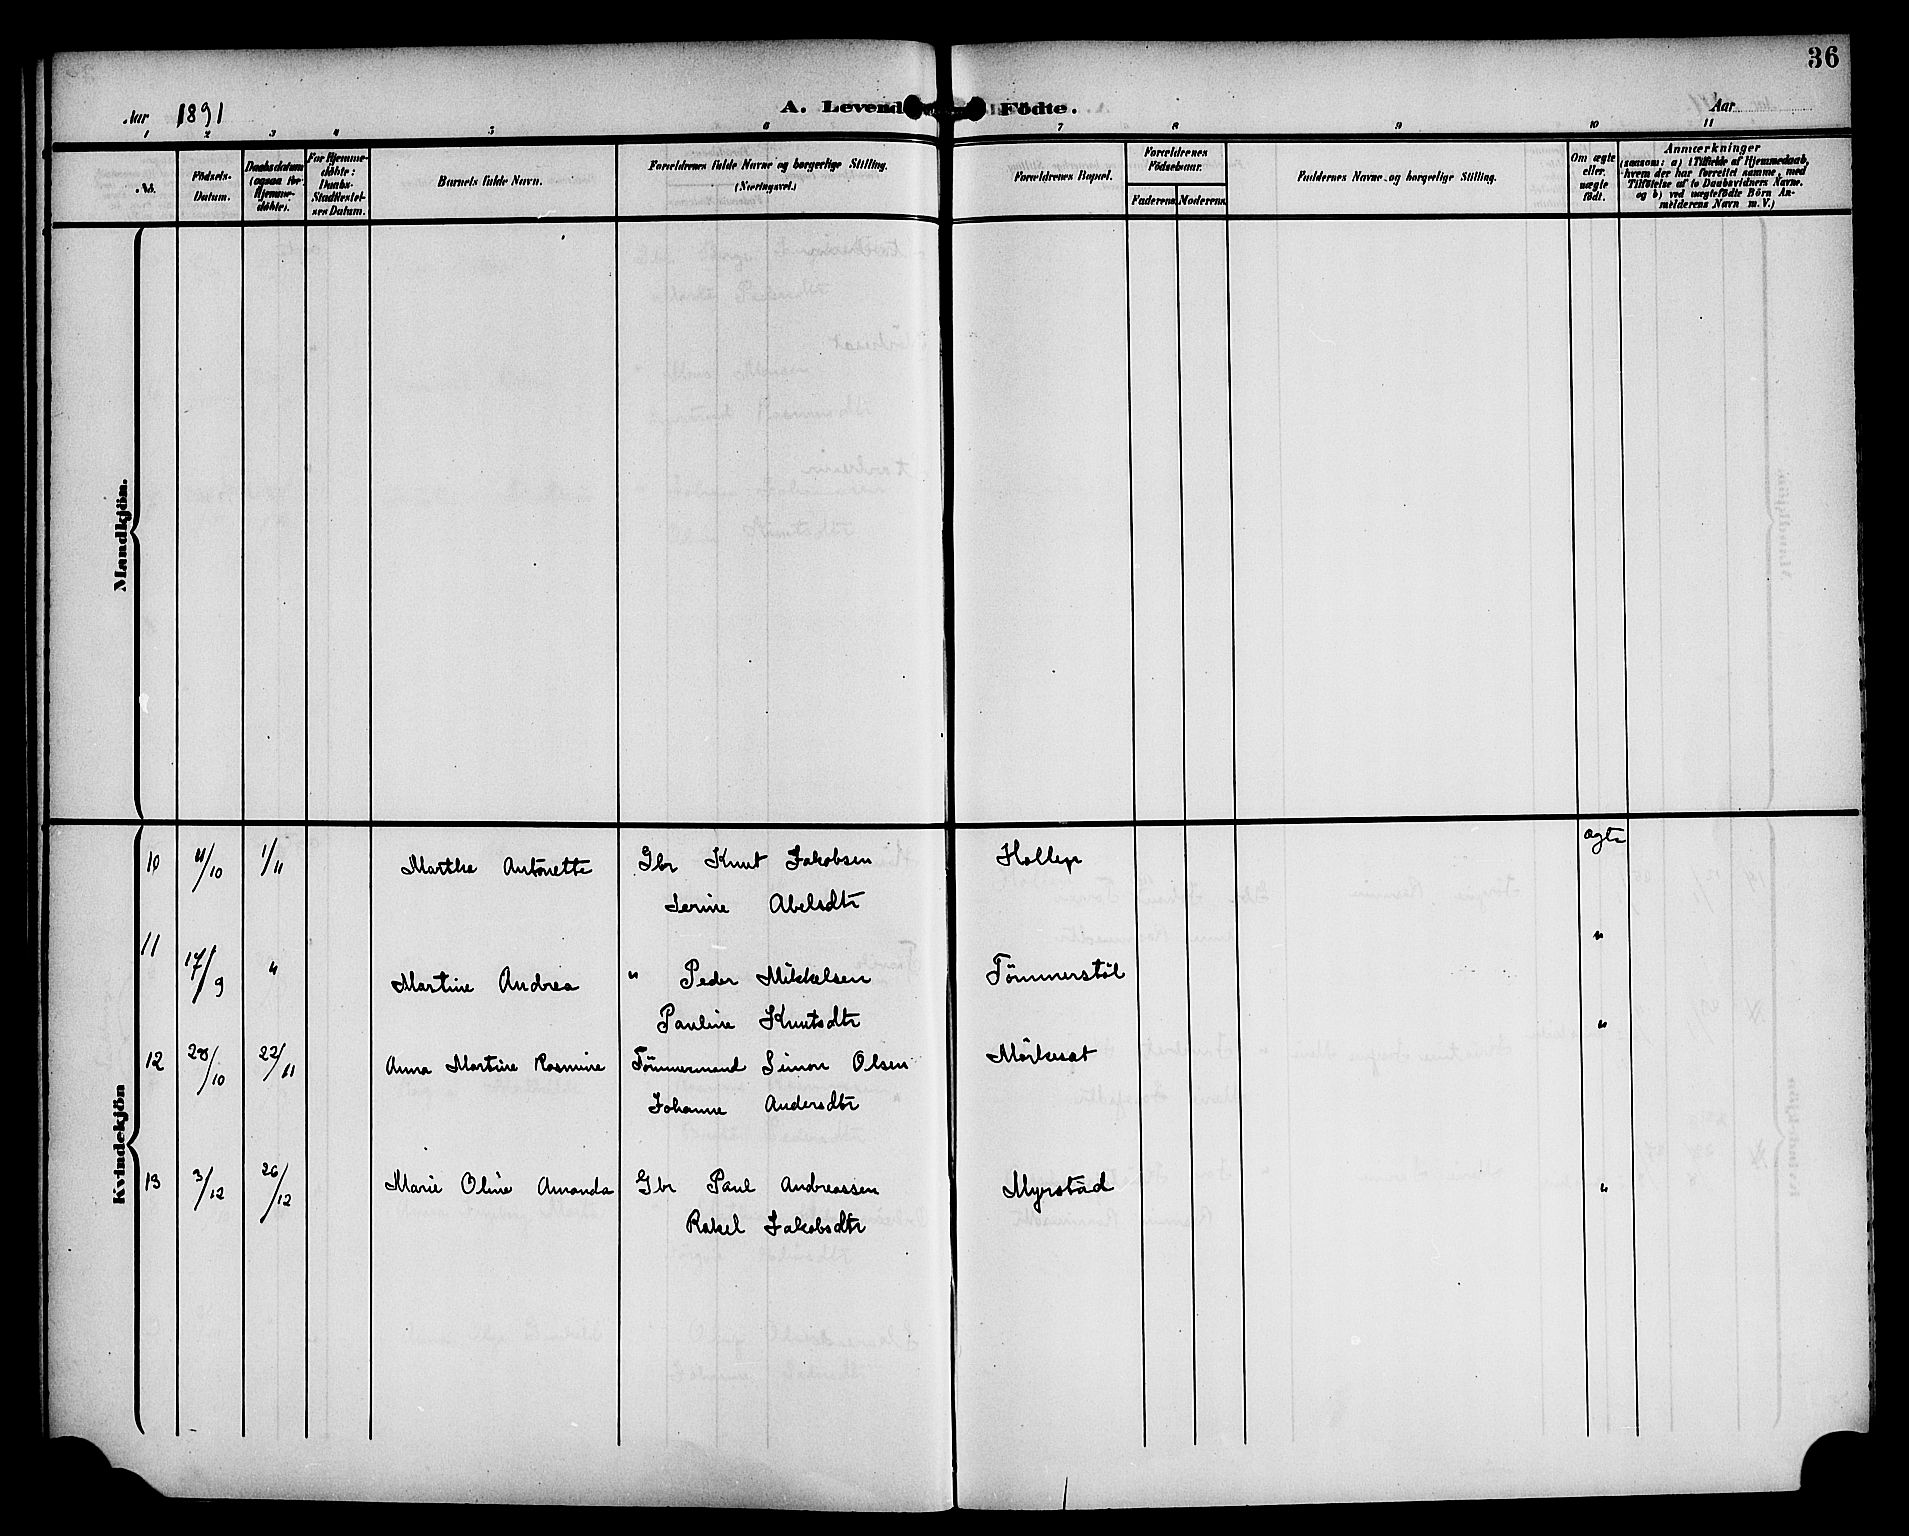 36
Aar 1891
A. Levende Födte.
Aar
1 2 3 4 5 6 7 8 9 10 11
No.
Födsels-
Datum.
Daabsdatum
(ogsaa for
Hjemme-
döbte).
For Hjemme-
döbte:
Daabs-
Stadfæstel-
ses Datum.
Barnets fulde Navn.
Forældrenes fulde Navne og borgerlige Stilling.
(Næringsvei.)
Forældrenes Bopæl.
Forældrenes
Födselsaar.
Faderens. Moderens.
Faddernes Navne og borgerlige Stilling.
Om ægte
eller
uægte
født.
Anmærkninger
(saasom: a) i Tilfælde af Hjemmedaab,
hvem der har forrettet samme, med
Tilføielse af to Daabsvidners Navne.
og b) ved uægtefødte Börn An-
melderens Navn m. V.)
Mandkjön.
Kvindekjön
10 4/10 1/11 Marthe Antonette Gbr Knut Jakobsen Hollep ægte
Serine Abelsdtr
11 17/9 " Martine Andrea " Peder Mikkelsen Tömmerstöl "
Pauline Knutsdtr
12 28/10 22/11 Anna Martine Rasmine Tömmermand Simon Olsen Mörkesat "
Johanne Andersdtr
13 3/12 26/12 Marie Oline Amanda Gbr Paul Andreassen Myrstad "
Rakel Jakobsdtr